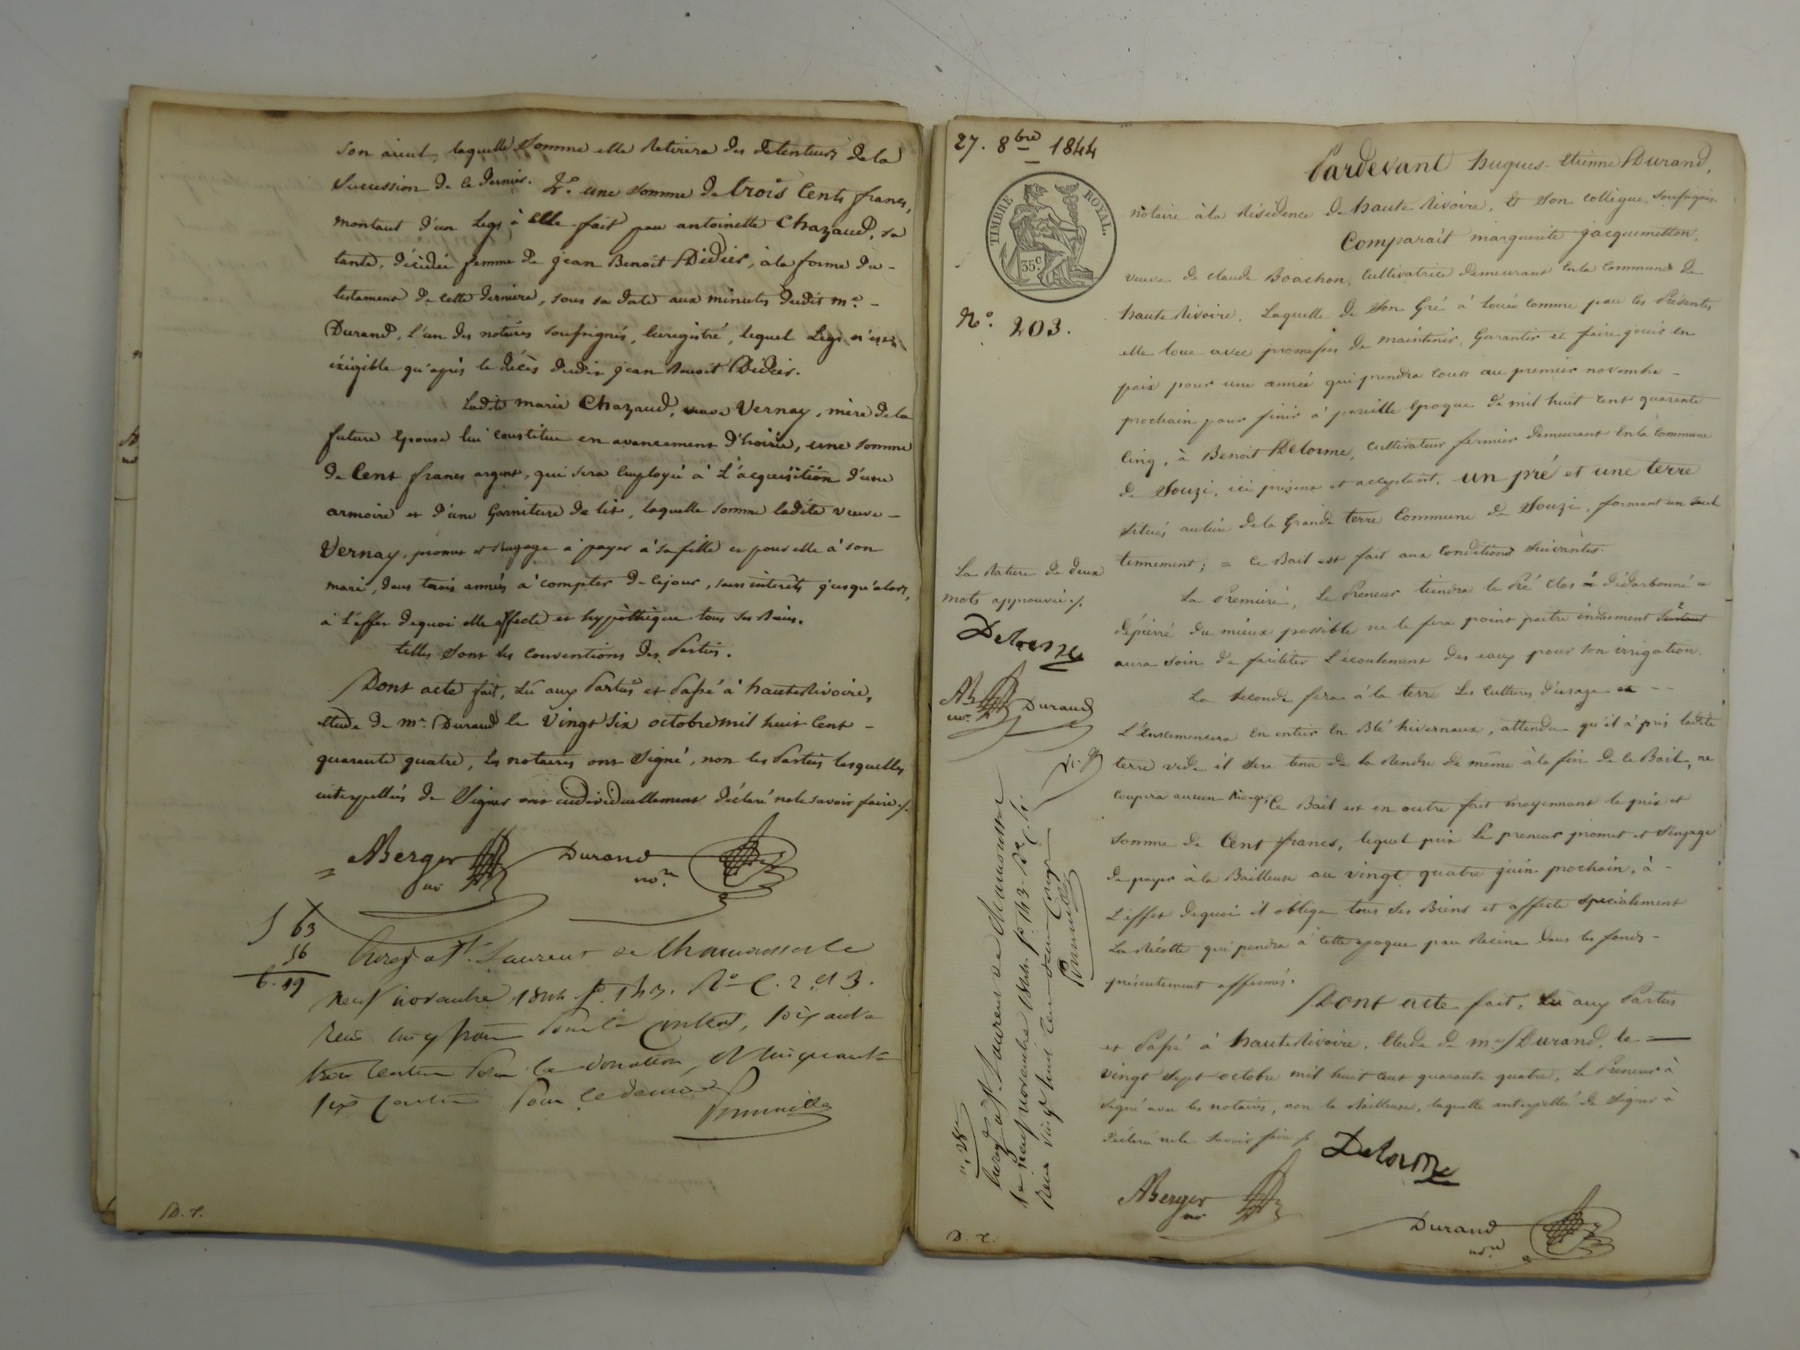 son aieul, laquelle Somme elle Retirera des détenteurs de la
Succession de ce dernier. 2.º une somme de trois Cents francs,
montant d'un Legs à Elle fait par antoinette Chazaud, sa
tante, décédée femme de jean Benoit Didier, à la forme du -
testament de cette dernière, sous sa date aux minutes dudit mᵉ -
Durand, l'un des notaires soussignés, Enregistré, lequel Legs n'est
éxigible qu'après le décès dudit jean Benoit Didier.
Ladite marie Chazaud, veuve Vernay, mère de la
future Epouse lui constitue en avancement d'hoirie, une somme
de Cent francs argent, qui sera Employée à L'acquisition d'une
armoire et d'une Garniture de lit, laquelle somme ladite veuve -
Vernay, promet et s'Engage à payer à sa fille et pour elle à son
mari, dans trois années à compter de cejour, sans interêts jusqu'alors,
à L'effet dequoi elle affecte et hypothèque tous ses Biens.
telles sont les conventions des Parties.
Dont acte fait, Lu aux Parties et Passé à hauterivoire,
Etude de mᵉ Durand le Vingt Six octobre mil huit Cent -
quarante quatre, Les notaires ont Signé, non les Parties lesquelles
interpellées de Signer ont individuellement déclaré ne le savoir faire ./.
ABerger no
Durand no.re
5
63
56
6. 19
Enregé à St. Laurent de Chamousset le
neuf novembre 1844 fº 143. Rº C. 2 et 3.
Reçu cinq francs pour le Contrat, soixante
trois Centimes pour la donation, et cinquante
six Centimes pour le décime
Prunelle
D. C.
27. 8bre 1844
TIMBRE ROYAL.
35c
Nº. 203.
Pardevant hugues-Etienne Durand,
notaire à la Résidence de haute Rivoire, et son collègue, soussignés.
Comparait marguerite jacquemetton,
veuve de claude Boachon, cultivatrice demeurant En la Commune de
haute Rivoire, Laquelle de Son Gré à Louée comme par les Présentes
elle loue avec promesses de maintenir, Garantir et faire jouir en
paix pour une année qui prendra cours au premier novembre -
prochain pour finir à pareille époque de mil huit cent quarante
Cinq, à Benoit Delorme, cultivateur fermier demeurant En la Commune
de Souzi, ici présent et acceptant, un pré et une terre
situés au lieu de la Grande terre Commune de Souzi, formant un seul
tennement; = Ce Bail est fait aux Conditions Suivantes.
La Première, Le Preneur tiendra le Pré Clos &
dépierré du mieux possible ne le fera point paître
aura soin de faciliter L'écoulement des eaux pour son irrigation.
La Seconde fera à la terre Les Cultures d'usage
L'Ensemencera En entier En Blé hivernaux, attendu qu'il à pris ladite
terre vide il sera tenu de la Rendre de même à la fin de ce Bail, ne
coupera aucun Ce Bail est en outre fait moyennant le prix et
somme de Cent francs, lequel prix Le preneur promet et S'engage
de payer à la Bailleuse au vingt quatre juin prochain, à -
L'effet dequoi il oblige tous ses Biens et affecte Spécialement
La Récolte qui pendra à cette époque par Racine dans les fonds -
présentement affermés.
Dont acte fait, Lu aux Parties
et Passé à hauteRivoire, Etude de mᵉ Durand, le
vingt Sept octobre mil huit cent quarante quatre, Le Preneur à
Signé avec les notaires, non la Bailleuse, laquelle interpellée de Signer à
déclaré ne le Savoir faire ./.
Delorme
ABerger no
Durand no.re
La Rature de deux
mots approuvée ./.
Delorme
AB
no.
Durand
Enregé à St. Laurent de Chamousset
le neuf novembre 1844. fº 143.
Prunelle
D. C.